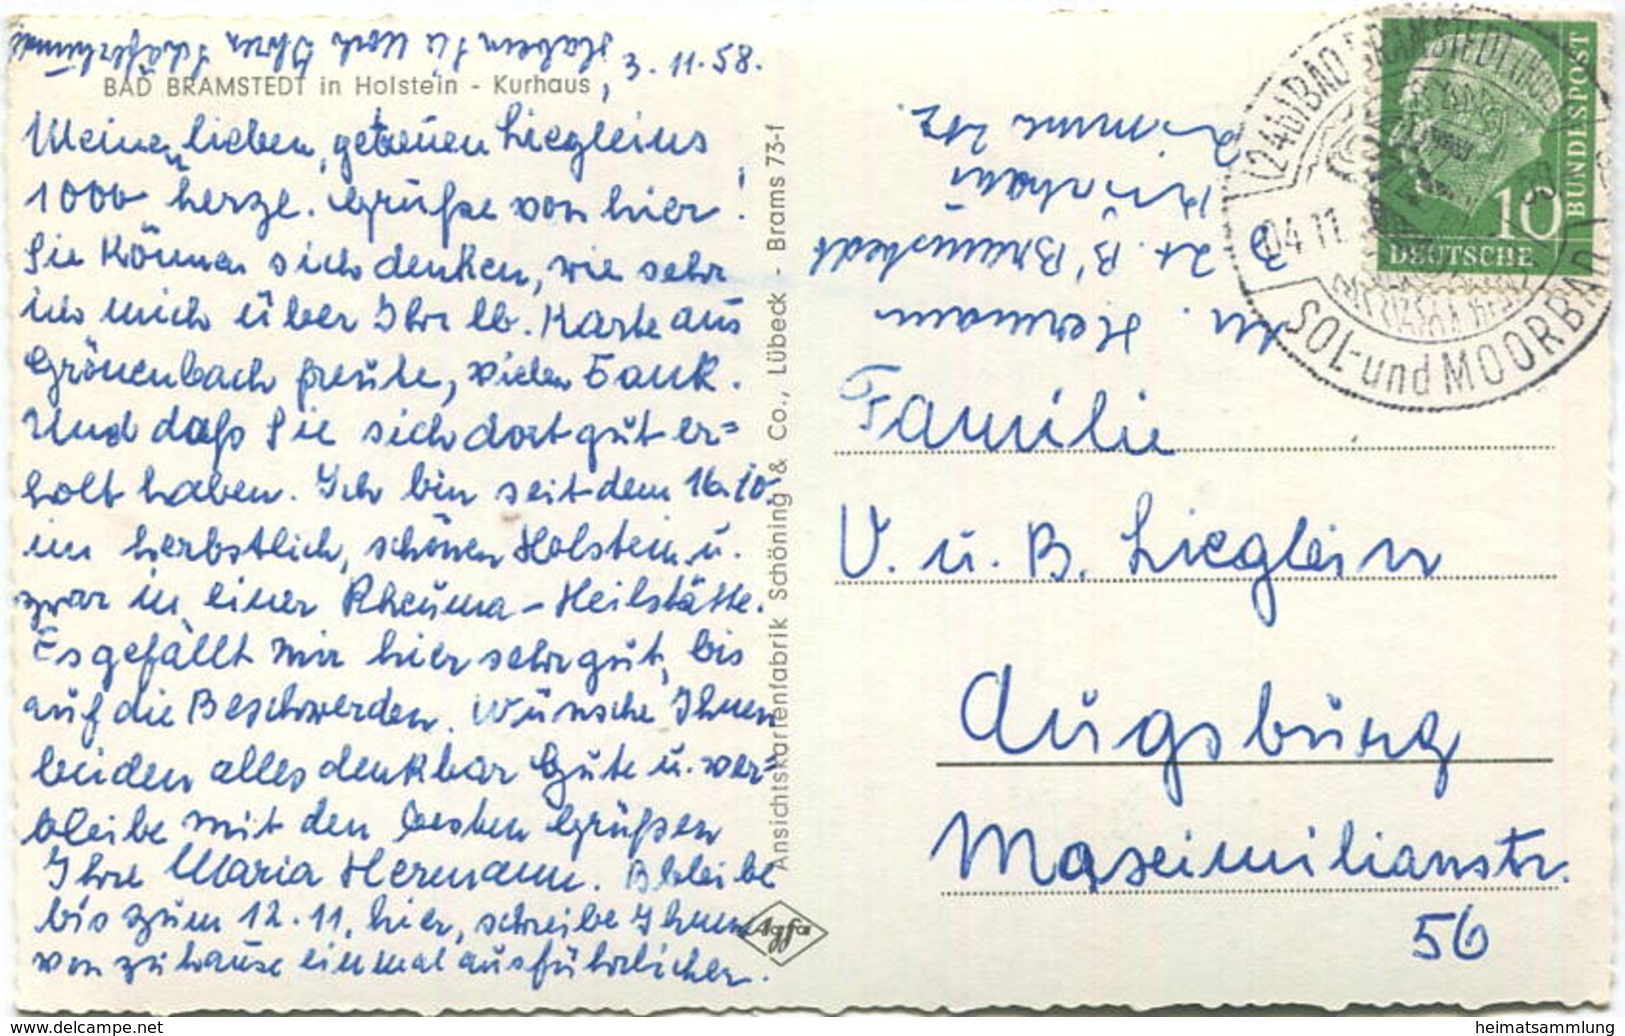 3.11.58.
BAD BRAMSTEDT in Holstein - Kurhaus
Meine lieben, getreuen Liegleins,
1000 herzl. Grüße von hier!
Sie können sich denken, wie sehr
ich mich über Ihre lb. Karte aus
Grönenbach freute, vielen Dank.
Und daß Sie sich dort gut er=
holt haben. Ich bin seit dem 16.10.
im herbstlich, schönen Holstein u.
zwar in einer Rheuma-Heilstätte.
Es gefällt mir hier sehr gut, bis
auf die Beschwerden. Wünsche Ihnen
beiden alles denkbar Gute u. ver=
bleibe mit den besten Grüßen
Ihre Maria Hermann. Bleibe
bis zum 12.11. hier, schreibe Ihnen
von zuhause einmal ausführlicher.
Haben Sie noch Ihren Schäferhund
Ansichtskartenfabrik Schöning & Co., Lübeck - Brams 73-f
Agfa
M. Hermann
z. Zt. B' Bramstedt
Kurhaus
Zimmer 212
(24b) BAD BRAMSTEDT (HOLST)
04.11.
SOL- und MOORBAD
10
DEUTSCHE
BUNDESPOST
Familie
V. u. B. Lieglein
Augsburg
Maximilianstr.
56
www.delcampe.net
heimatsammlung